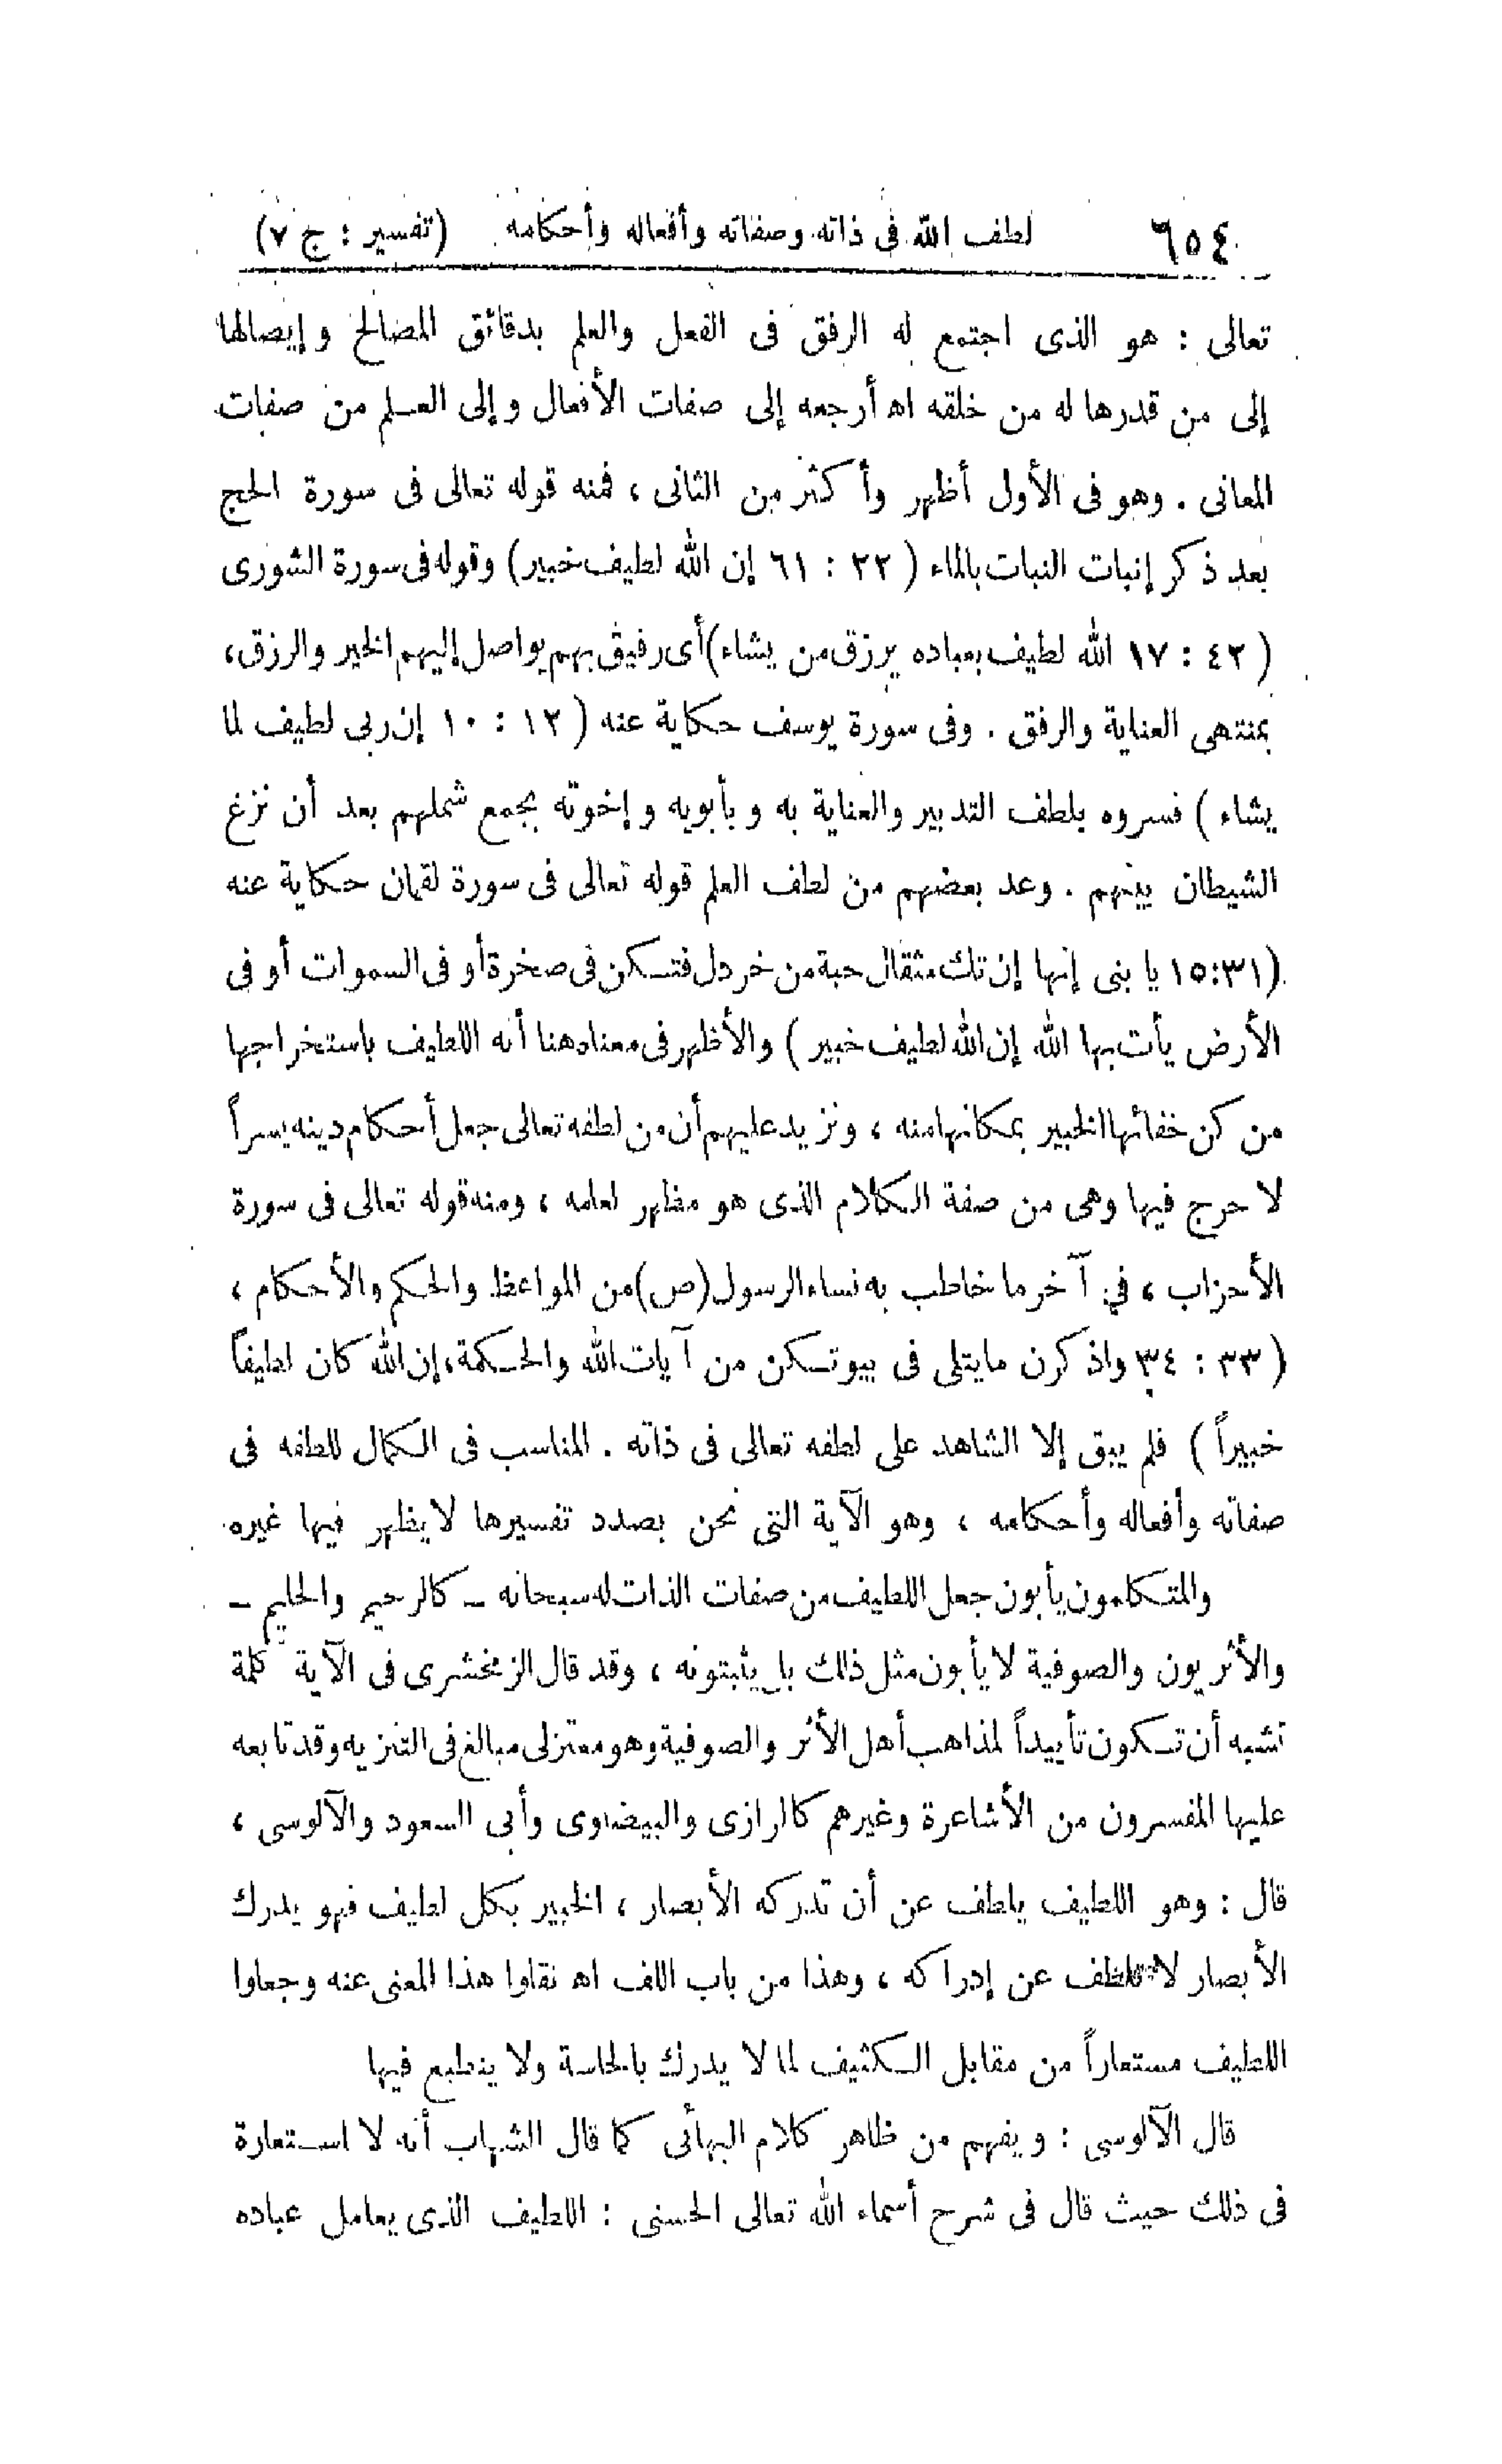 ٦٥٤ لطف الله فى ذاته وصفاته وأفعاله وأحكامه (تفسير : ج ٧)
تعالى : هو الذى اجتمع له الرفق فى الفعل والعلم بدقائق المصالح وإيصالها
إلى من قدرها له من خلقه اه أرجعه إلى صفات الأفعال وإلى العلم من صفات
المعانى . وهو فى الأول أظهر وأكثر من الثانى ، فمنه قوله تعالى فى سورة الحج
بعد ذكر إنبات النبات بالماء ( ٢٢ : ٦١ إن الله لطيف خبير) وقوله فى سورة الشورى
( ٤٢ : ١٧ الله لطيف بعباده يرزق من يشاء) أى رفيق بهم يواصل إليهم الخير والرزق،
بمنتهى العناية والرفق . وفى سورة يوسف حكاية عنه ( ١٢ : ١٠ إن ربى لطيف لما
يشاء ) فسروه بلطف التدبير والعناية به وبأبويه وإخوته بجمع شملهم بعد أن نزغ
الشيطان بينهم . وعد بعضهم من لطف العلم قوله تعالى فى سورة لقمان حكاية عنه
(١٥:٣١ يا بنى إنها إن تك مثقال حبة من خردل فتكن فى صخرة أو فى السموات أو فى
الأرض يأت بها الله إن الله لطيف خبير ) والأظهر فى معناه هنا أنه اللطيف باستخراجها
من كن خفائها الخبير بمكانها منه ، ونزيد عليهم أن من لطفه تعالى جعل أحكام دينه يسراً
لا حرج فيها وهى من صفة الكلام الذى هو مظهر لعلمه ، ومنه قوله تعالى فى سورة
الأحزاب ، فى آخر ما خاطب به نساء الرسول (ص) من المواعظ والحكم والأحكام ،
( ٣٣ : ٣٤ واذكرن ما يتلى فى بيوتكن من آيات الله والحكمة، إن الله كان لطيفاً
خبيراً ) فلم يبق إلا الشاهد على لطفه تعالى فى ذاته . المناسب فى الكمال للطفه فى
صفاته وأفعاله وأحكامه ، وهو الآية التى نحن بصدد تفسيرها لا يظهر فيها غيره
والمتكلمون يأبون جعل اللطيف من صفات الذات له سبحانه ــ كالرحيم والحليم ــ
والأثريون والصوفية لا يأبون مثل ذلك بل يثبتونه ، وقد قال الزمخشرى فى الآية كلمة
تشبه أن تكون تأييداً لمذاهب أهل الأثر والصوفية وهو معتزلى مبالغ فى التنزيه وقد تابعه
عليها المفسرون من الأشاعرة وغيرهم كالرازى والبيضاوى وأبى السعود والآلوسى ،
قال : وهو اللطيف يلطف عن أن تدركه الأبصار ، الخبير بكل لطيف فهو يدرك
الأبصار لا تلطف عن إدراكه ، وهذا من باب اللف اه نقلوا هذا المعنى عنه وجعلوا
اللطيف مستعاراً من مقابل الكثيف لما لا يدرك بالحاسة ولا ينطبع فيها
قال الآلوسى : ويفهم من ظاهر كلام البهائى كما قال الشهاب أنه لا استعارة
فى ذلك حيث قال فى شرح أسماء الله تعالى الحسنى : اللطيف الذى يعامل عباده